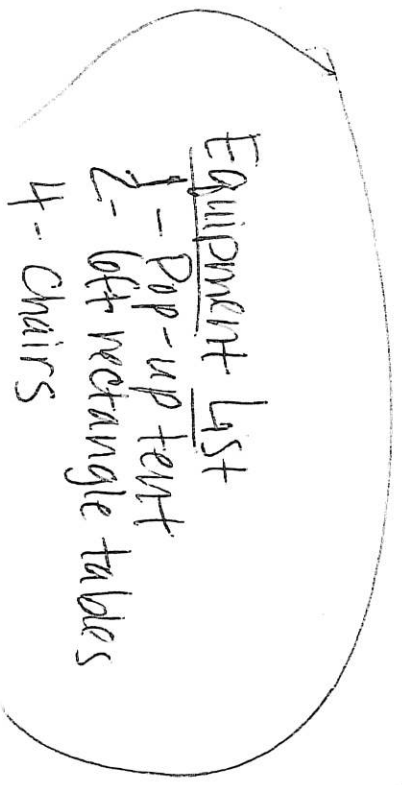 Equipment List
1 - Pop-up tent
2 - 6ft rectangle tables
4 - Chairs